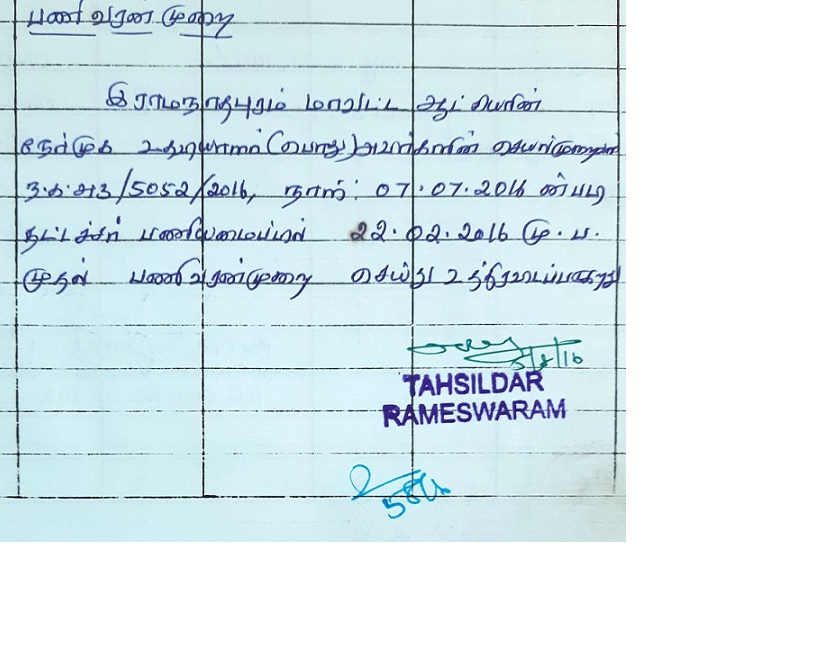 பணி வரன் முறை
இராமநாதபுரம் மாவட்ட ஆட்சியரின்
நேர்முக உதவியாளர் (பொது) அவர்களின் செயல்முறைகள்
ந.க.அ3/5052/2016, நாள்: 07.07.2016 ன்படி
தட்டச்சர் பணியமைப்பில் 22.02.2016 மு.ப.
முதல் பணிவரன்முறை செய்து உத்திரவிடப்படுகிறது
5/8/16
TAHSILDAR
RAMESWARAM